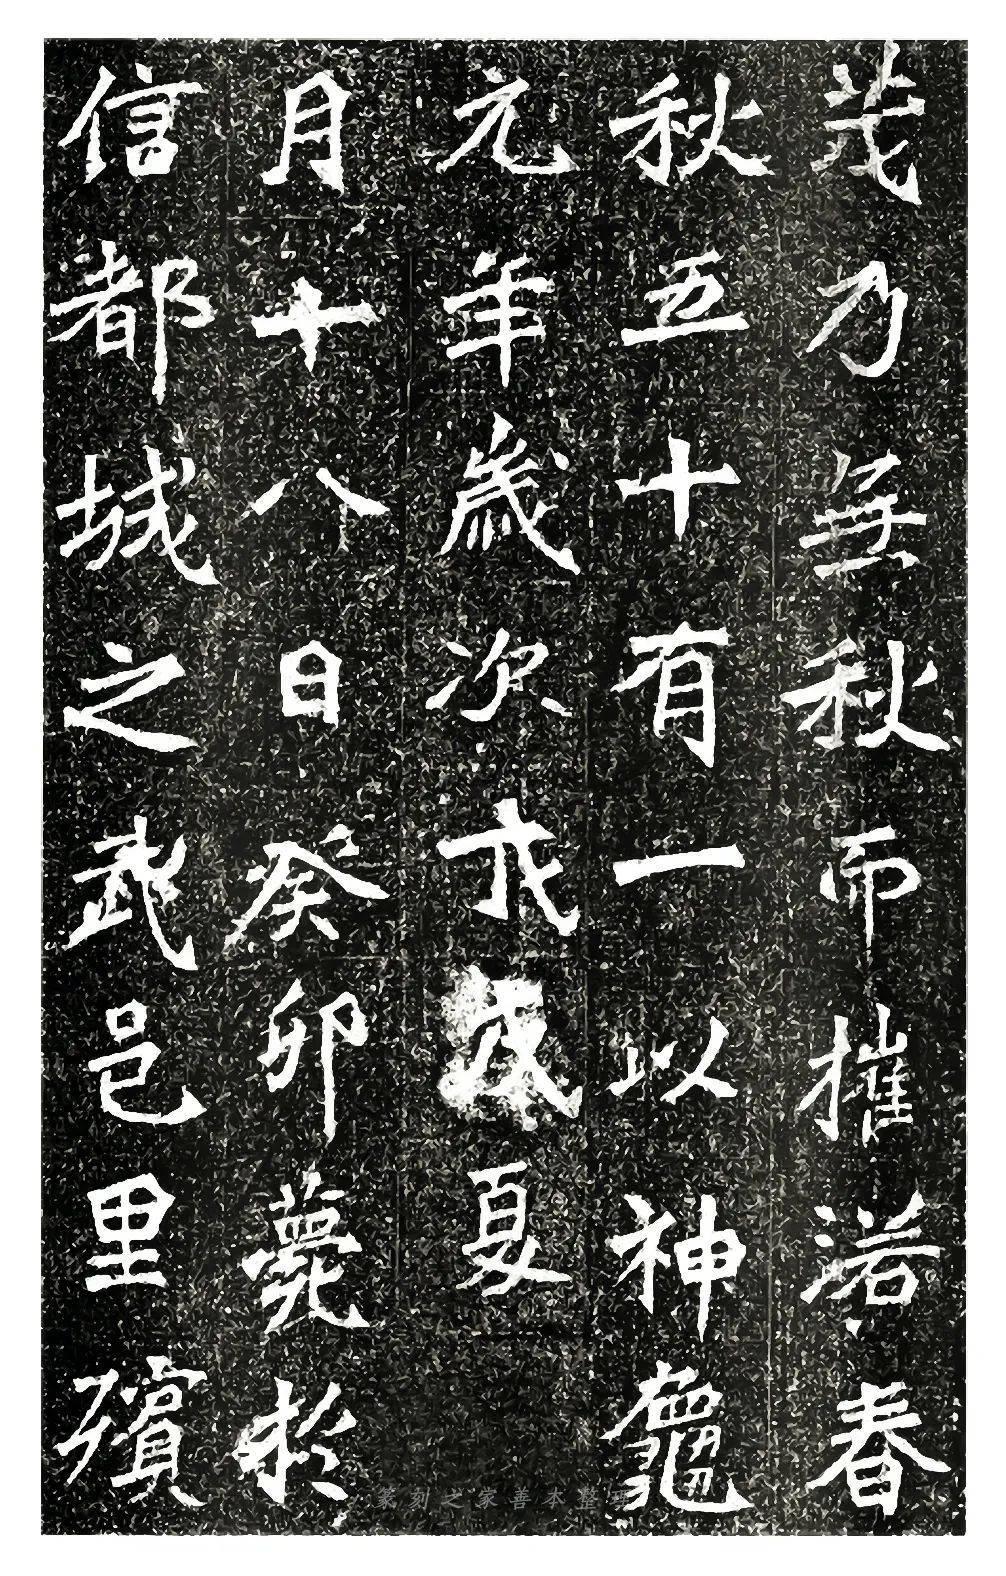 茂乃無秋而摧渃春
秋五十有一以神龜
元年歲次戊戌夏
月十八日癸卯薨於
信都城之武邑里殯
篆刻之家善本整理